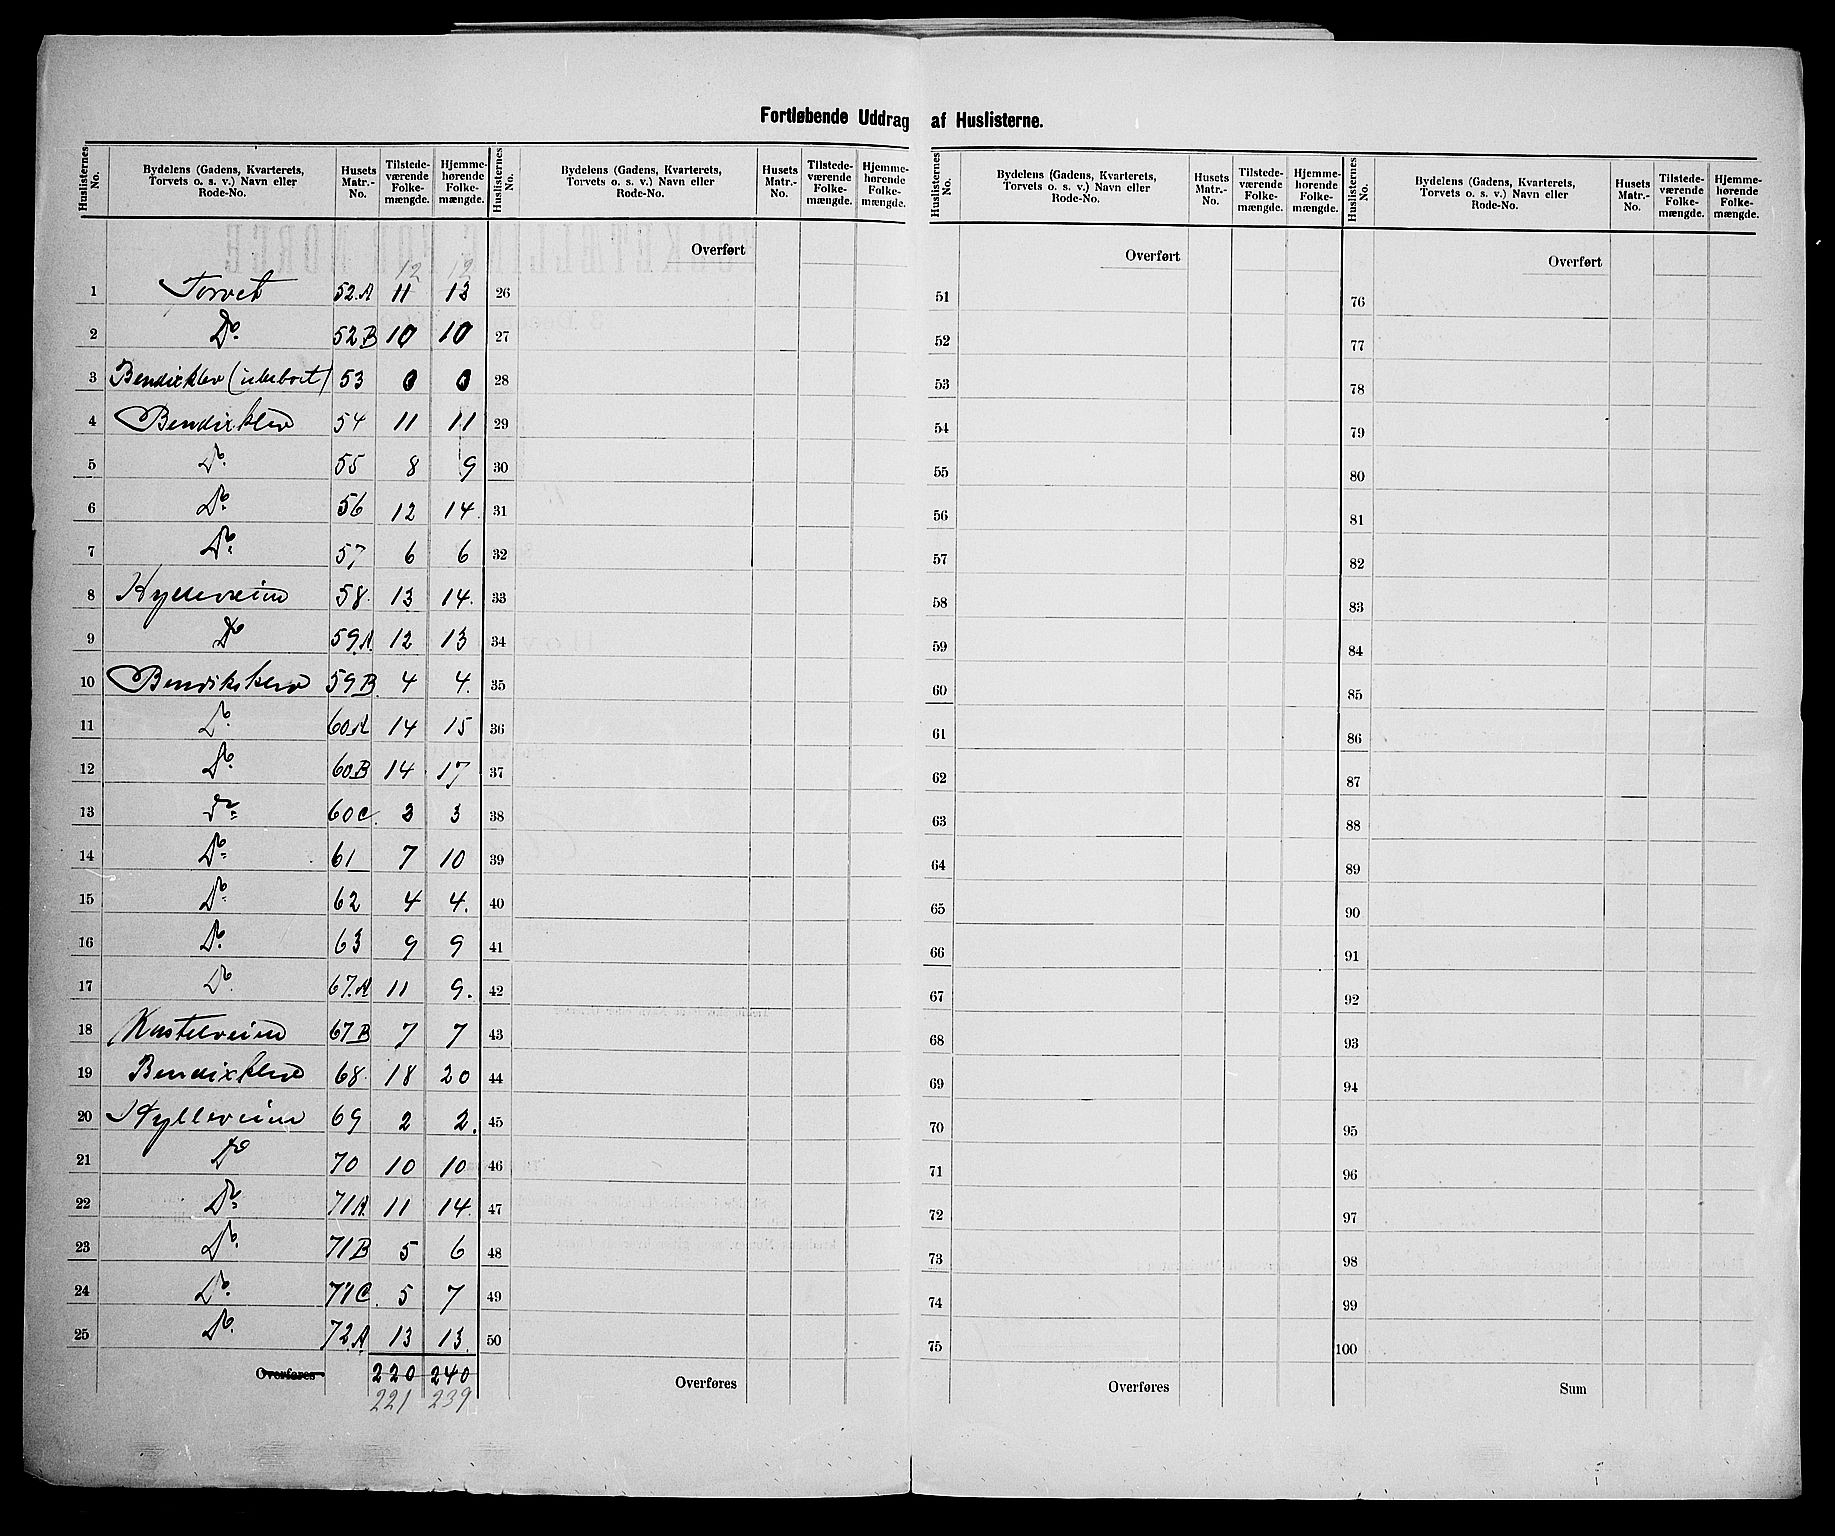 Fortløbende Uddrag af Huslisterne.
Huslisternes No. | Bydelens (Gadens, Kvarterets, Torvets o. s. v.) Navn eller Rode-No. | Husets Matr.-No. | Tilstedeværende Folkemængde. | Hjemmehørende Folkemængde.
Huslisternes No. | Bydelens (Gadens, Kvarterets, Torvets o. s. v.) Navn eller Rode-No. | Husets Matr.-No. | Tilstedeværende Folkemængde. | Hjemmehørende Folkemængde.
Huslisternes No. | Bydelens (Gadens, Kvarterets, Torvets o. s. v.) Navn eller Rode-No. | Husets Matr.-No. | Tilstedeværende Folkemængde. | Hjemmehørende Folkemængde.
Huslisternes No. | Bydelens (Gadens, Kvarterets, Torvets o. s. v.) Navn eller Rode-No. | Husets Matr.-No. | Tilstedeværende Folkemængde. | Hjemmehørende Folkemængde.
Overført Overført Overført
12 12
1 Torvet 52.A 11 13 26 51 76
2 Do. 52B 10 10 27 52 77
3 Bendixklev (ubeboet) 53 0 0 28 53 78
4 Bendixklev 54 11 11 29 54 79
5 Do. 55 8 9 30 55 80
6 Do. 56 12 14. 31 56 81
7 Do. 57 6 6 32 57 82
8 Hylleveien 58. 13 14. 33 58 83
9 Do 59.A 12 13 34 59 84
10 Bendiksklev 59B. 4 4. 35 60 85
11 Do. 60A 14 15 36 61 86
12 Do. 60B 14 17 37 62 87
13 Do 60C. 2 3 38 63 88
14 Do 61 7 10 39 64 89
15 Do. 62 4 4. 40 65 90
16 Do. 63 9 9 41 66 91
17 Do. 67.A 11 9. 42 67 92
18 Kastelveien 67B 7 7 43 68 93
19 Bendixklev 68. 18 20 44 69 94
20 Hylleveien 69 2 2. 45 70 95
21 Do 70 10 10 46 71 96
22 Do 71A. 11 14. 47 72 97
23 Do. 71B 5 6 48 73 98
24 Do. 71C. 5 7 49 74 99
25 Do. 72A 13 13. 50 75 100
Overføres 220 240 Overføres Overføres Sum
221 239